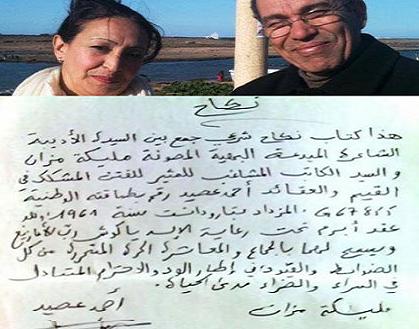 نكاح
هذا كتاب نكاح شرعي جمع بين السيدة الأديبة
الشاعرة المبدعة البهية المصونة مليكة مزان
و السيد الكاتب المشاغب المثير للفتن المشكك في
القيم والعقائد أحمد عصيد رقم بطاقته الوطنية
المزداد بتارودانت سنة 1961 وهو
عقد أبرم تحت رعاية الإله ياكوش رب الأمازيغ
ويسمح لهما بالجماع والمعاشرة الحرة المتحررة من كل
الضوابط والقيود في إطار الود والاحترام المتبادل
في السراء والضراء مدى الحياة.
مليكة مزان أحمد عصيد